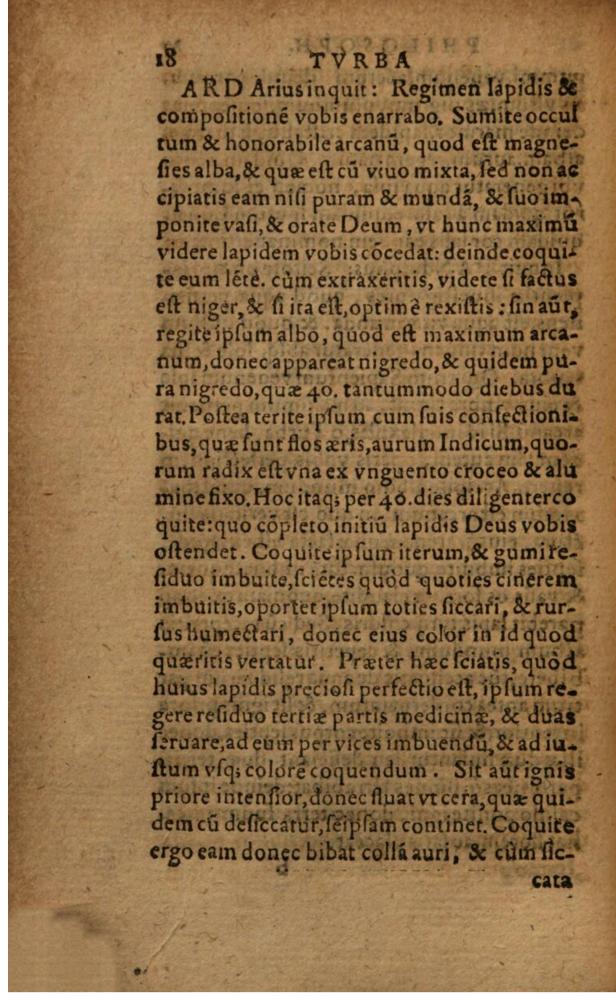 18 TVRBA
ARD Arius inquit: Regimen lapidis &
compositionẽ vobis enarrabo. Sumite occul
tum & honorabile arcanũ, quod est magne-
sies alba, & quæ est cũ viuo mixta, sed non ac
cipiatis eam nisi puram & mundã, & suo im-
ponite vasi, & orate Deum, vt hunc maximũ
videre lapidem vobis cõcedat: deinde coqui-
te eum lẽtè. cùm extraxeritis, videte si factus
est niger, & si ita est, optimè rexistis: sin aũt,
regite ipsum albo, quod est maximum arca-
num, donec appareat nigredo, & quidem pu-
ra nigredo, quæ 40. tantummodo diebus du
rat. Postea terite ipsum cum suis confectioni-
bus, quæ sunt flos æris, aurum Indicum, quo-
rum radix est vna ex vnguento croceo & alu
mine fixo. Hoc itaq; per 40. dies diligenter co
quite: quo cõpleto initiũ lapidis Deus vobis
ostendet. Coquite ipsum iterum, & gumi re-
siduo imbuite, sciẽtes quòd quoties cinerem
imbuitis, oportet ipsum toties siccari, & rur-
sus humectari, donec eius color in id quod
quæritis vertatur. Præter hæc sciatis, quòd
huius lapidis preciosi perfectio est, ipsum re-
gere residuo tertiæ partis medicinæ, & duas
seruare, ad eum per vices imbuendũ, & ad iu-
stum vsq; colorẽ coquendum. Sit aũt ignis
priore intensior, donec fluat vt cera, quæ qui-
dem cũ desiccatur, seipsam continet. Coquite
ergo eam donec bibat collã auri, & cùm sic-
cata